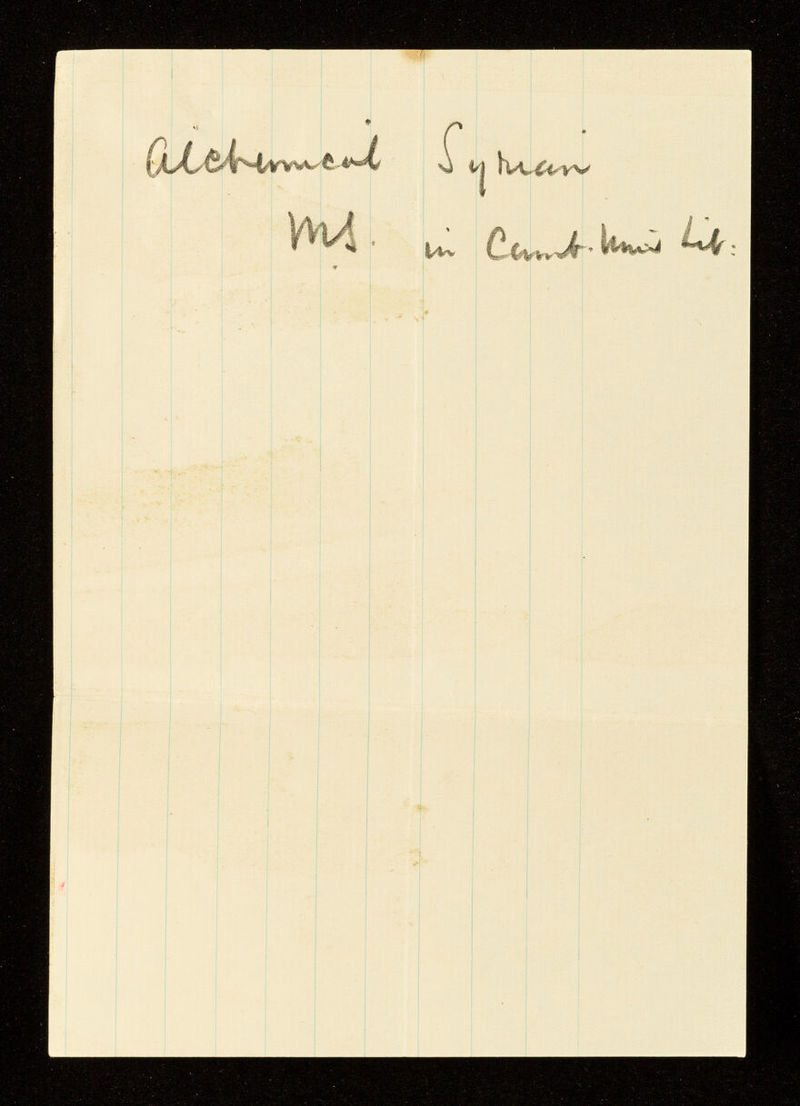 Alchemical Syrian
MS. in Camb. Univ Lib: